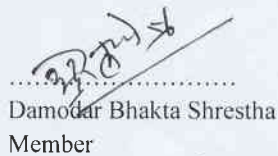 Damodar Bhakta Shrestha
Member